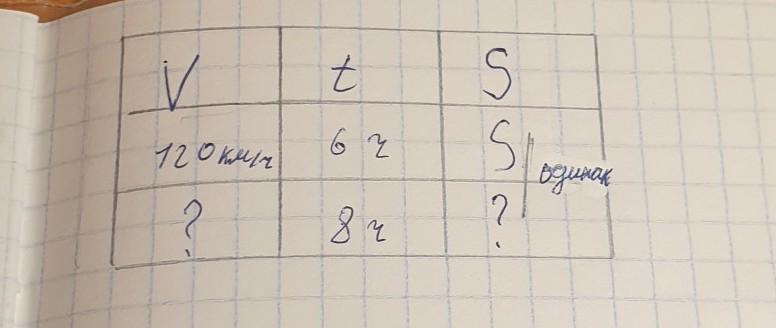 V t S
120км/ч 6 ч S одинак
? 8 ч ?